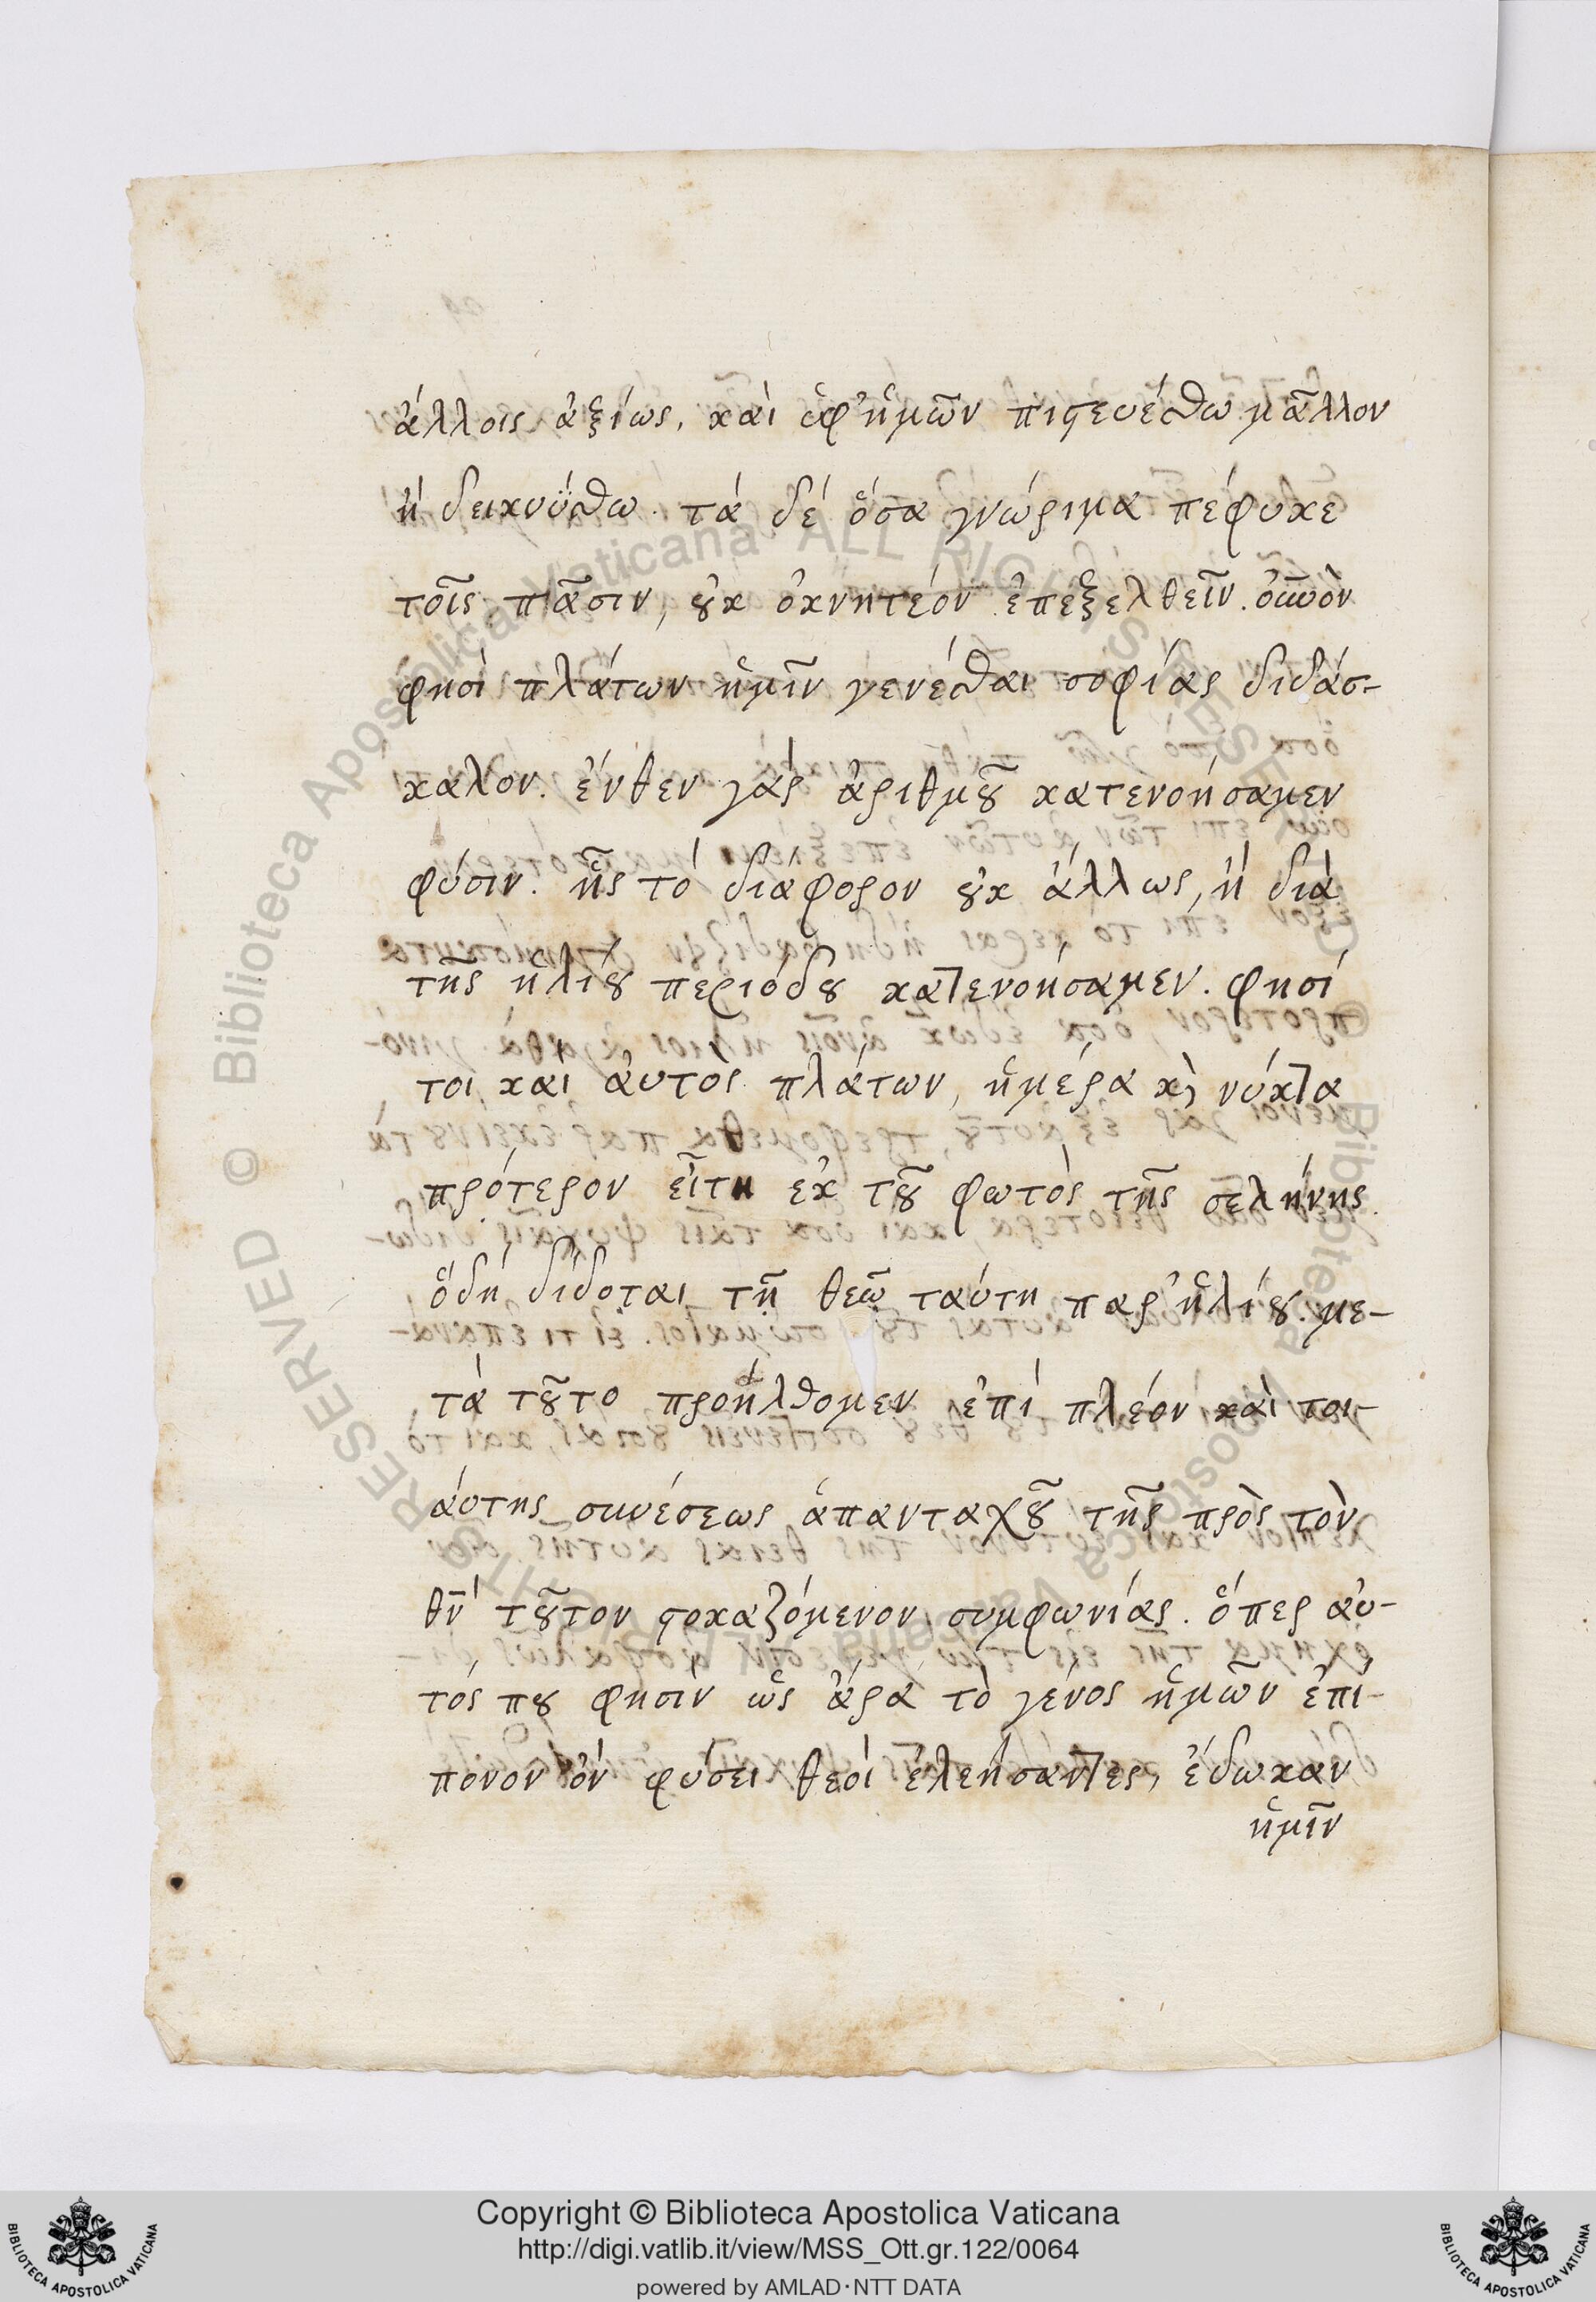 ἄλλοις ἀξίως, καὶ ἐφ' ἡμῶν πιστευέσθω μᾶλλον
ἢ δεικνύσθω. τὰ δὲ ὅσα γνώριμα πέφυκε
τοῖς πᾶσιν, οὐκ ὀκνητέον ἐπεξελθεῖν.
φησὶ πλάτων ἡμῖν γενέσθαι σοφίας διδάσ-
καλον. ἔνθεν γὰρ ἀριθμοῦ κατενοήσαμεν
φύσιν. ἧς τὸ διάφορον οὐκ ἄλλως, ἢ διὰ
τῆς ἡλίου περιόδου κατενοήσαμεν. φησί
τοι καὶ ἀυτὸς πλάτων, ἡμέρα κὶ νύκτα
πρότερον εἶτη ἐκ τοῦ φωτὸς τῆς σελήνης.
ὃδὴ δίδοται τῇ θεῷ ταύτη παρ' ἡλίου. με-
τὰ τοῦτο προήλθομεν ἐπὶ πλέον καὶ τοι-
άυτης συνέσεως ἁπανταχοῦ τῆς πρὸς τὸν
θν̄ τοῦτον στοχαζόμενον συμφωνίας. ὅπερ ἀυ-
τός που φησὶν ὡς ἄρα τὸ γένος ἡμῶν ἐπί-
πονον ὂν φύσει θεοὶ ἐλεήσαντες, ἔδωκαν
ἡμῖν
Copyright © Biblioteca Apostolica Vaticana
http://digi.vatlib.it/view/MSS_Ott.gr.122/0064
powered by AMLAD·NTT DATA
BIBLIOTECA APOSTOLICA VATICANA
BIBLIOTECA APOSTOLICA VATICANA